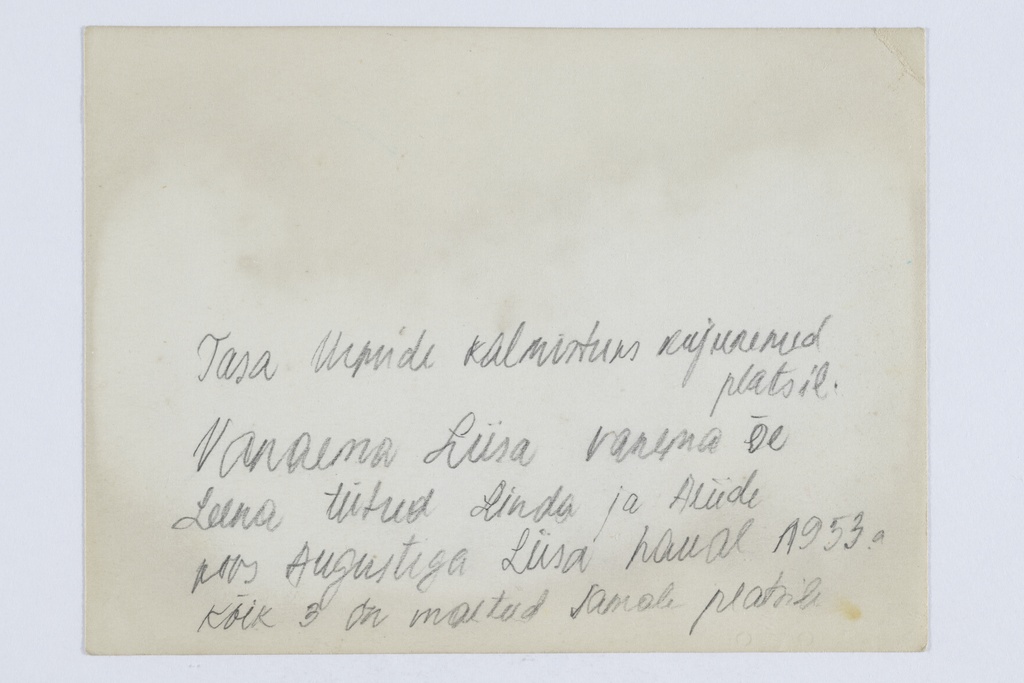 Tasa kalmistus
platsil.
Vanaema Liisa vanema õe
Leena tütred Linda ja Alide
poos Augustiga Liisa haual 1953.a
Kõik 3 on maetud samale platsile